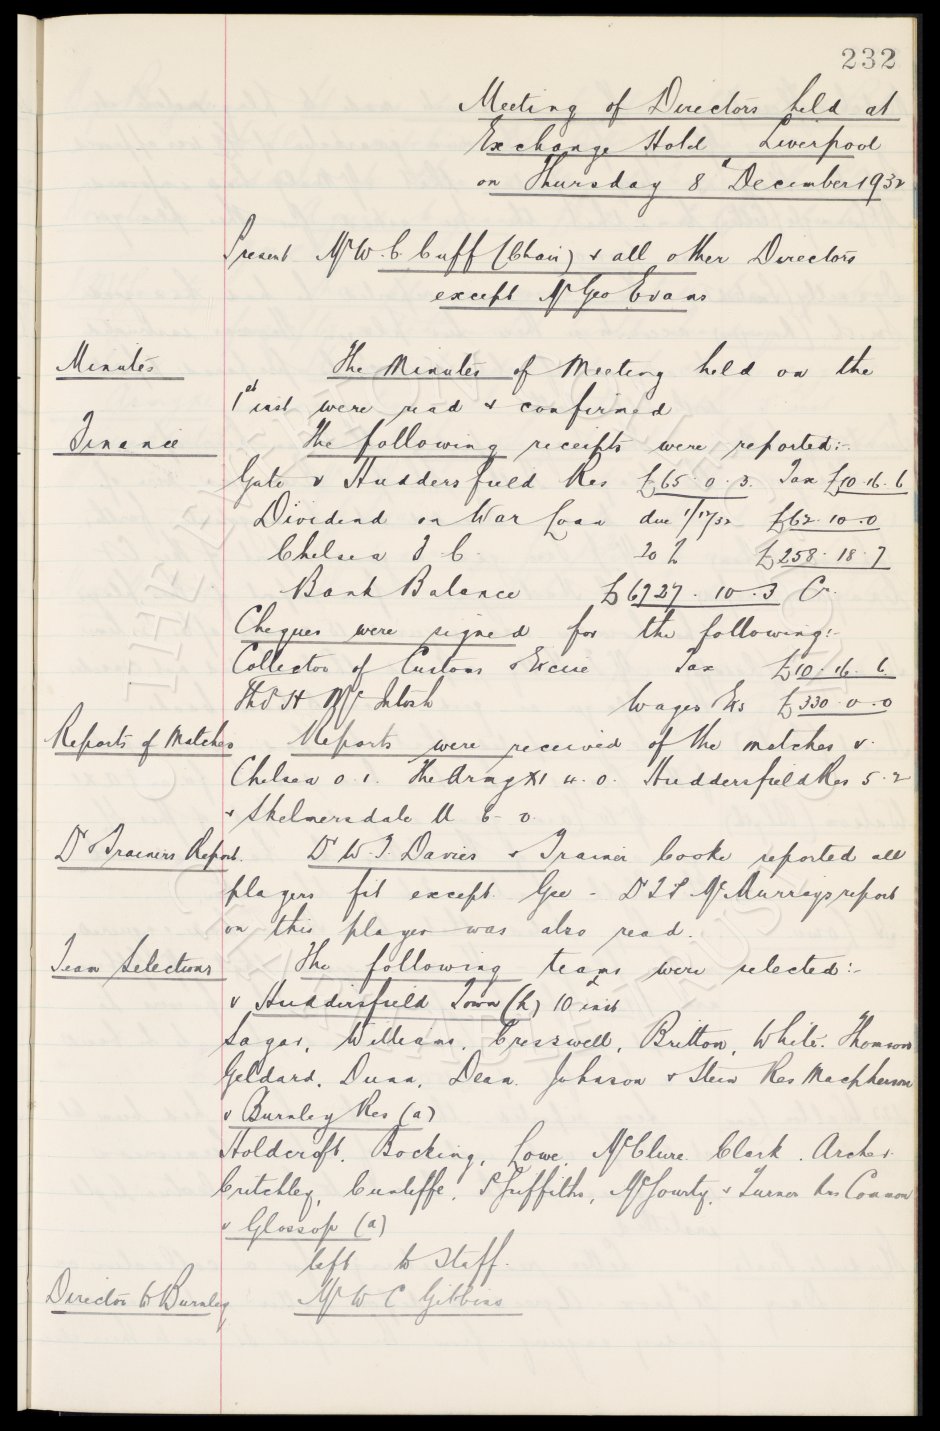 232
Meeting of Directors held at
Exchange Hotel Liverpool
on Thursday 8th December 1932
Present Mr W. C. Cuff (Chair) & all other Directors
except Mr Geo Evans
Minutes The Minutes of Meeting held on the
1st inst were read & confirmed
Finance The following receipts were reported:-
Gate v Huddersfield Res £65. 0. 3. Tax £10. 16. 6
Dividend on War Loan due 1/12/32 £62. 10. 0
Chelsea F C. 20% £258. 18. 7
Bank Balance £6727. 10. 3 Cr.
Cheques were signed for the following:-
Collector of Customs & Excise Tax £10. 16. 6.
Th H Mc Intosh Wages &s £330. 0. 0
Reports of Matches Reports were received of the matches v.
Chelsea 0. 1. The Army XI 4. 0. Huddersfield Res 5. 2
& Skelmersdale U 6 - 0.
Dr & Trainers Report. Dr W. J. Davies & Trainer Cooke reported all
players fit except Gee - Dr T P McMurrays report
on this player was also read.
Team Selections The following teams were selected:-
v Huddersfield Town (h) 10th inst
Sagar, Williams, Cresswell, Britton, White. Thomson
Geldard, Dunn, Dean. Johnson & Stein Res Macpherson
v Burnley Res (a)
Holdcroft. Bocking, Lowe, McClure. Clark. Archer.
Critchley, Cunliffe, P Griffiths, McGourty, & Turner Res Common
v Glossop (a)
left to Staff.
Director to Burnley Mr W C Gibbins